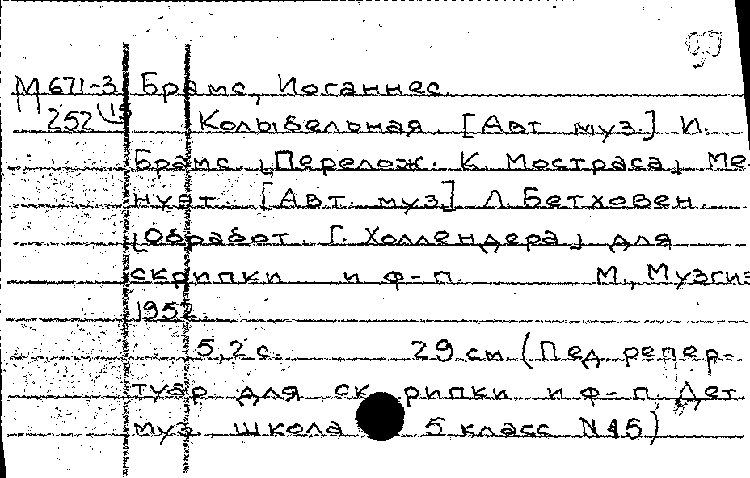 М 671-3 Брамс, Иоганнес.
252 Колыбельная. [Авт муз.] И.
Брамс. [Перелож. К. Мостраса] Ме
нуэт. [Авт. муз] Л. Бетховен.
[Обработ. Г. Холлендера] для
скрипки и ф-п. М., Музгиз
1952.
5, 2 с. 29 см (Пед репер-
туар для ск рипки и ф-п. Дет
муз школа 5 класс N 15)